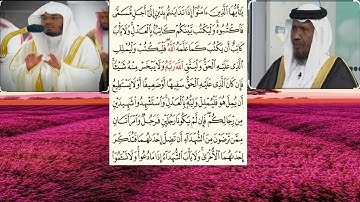 يَٰٓأَيُّهَا ٱلَّذِينَ ءَامَنُوٓا۟ إِذَا تَدَايَنتُم بِدَيْنٍ إِلَىٰٓ أَجَلٍ مُّسَمًّى
فَٱكْتُبُوهُ وَلْيَكْتُب بَّيْنَكُمْ كَاتِبٌۢ بِٱلْعَدْلِ وَلَا يَأْبَ
كَاتِبٌ أَن يَكْتُبَ كَمَا عَلَّمَهُ ٱللَّهُ فَلْيَكْتُبْ وَلْيُمْلِلِ
ٱلَّذِى عَلَيْهِ ٱلْحَقُّ وَلْيَتَّقِ ٱللَّهَ رَبَّهُۥ وَلَا يَبْخَسْ مِنْهُ شَيْـًٔا
فَإِن كَانَ ٱلَّذِى عَلَيْهِ ٱلْحَقُّ سَفِيهًا أَوْ ضَعِيفًا أَوْ لَا يَسْتَطِيعُ
أَن يُمِلَّ هُوَ فَلْيُمْلِلْ وَلِيُّهُۥ بِٱلْعَدْلِ وَٱسْتَشْهِدُوا۟ شَهِيدَيْنِ
مِن رِّجَالِكُمْ فَإِن لَّمْ يَكُونَا رَجُلَيْنِ فَرَجُلٌ وَٱمْرَأَتَانِ
مِمَّن تَرْضَوْنَ مِنَ ٱلشُّهَدَآءِ أَن تَضِلَّ إِحْدَىٰهُمَا فَتُذَكِّرَ
إِحْدَىٰهُمَا ٱلْأُخْرَىٰ وَلَا يَأْبَ ٱلشُّهَدَآءُ إِذَا مَا دُعُوا۟ وَلَا تَسْـَٔمُوٓا۟